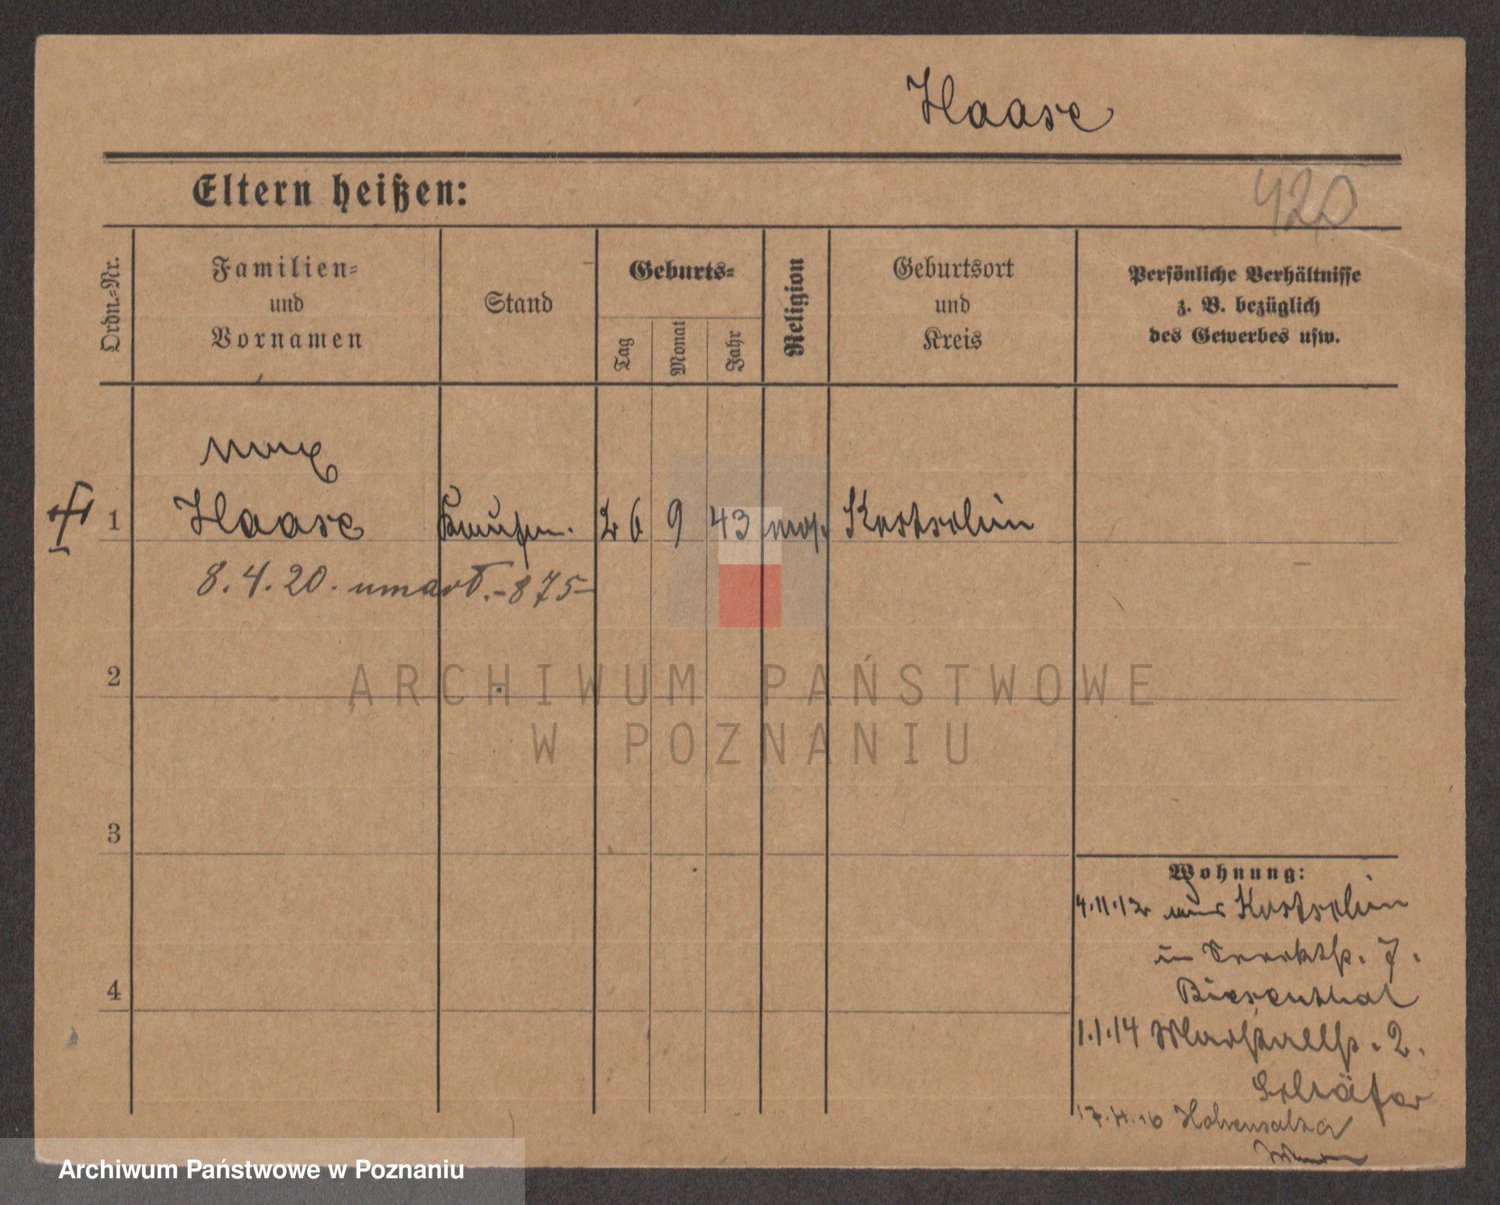 Haase
420
Eltern heißen:
Ordn.-Nr.
Familien-
und
Vornamen
Stand
Geburts-
Tag
Monat
Jahr
Religion
Geburtsort
und
Kreis
Persönliche Verhältnisse
z. B. bezüglich
des Gewerbes usw.
Max
1 Haase Kaufm. 26 9 43 mos. Kostschin
8.4.20. umarł.-875-
2
3
4
ARCHIWUM PAŃSTWOWE
W POZNANIU
Wohnung:
4.11.12 aus Kostschin
in 7.
Biesenthal
1.1.14 Marstallstr. 2.
Schäfer
Hohensalza
Archiwum Państwowe w Poznaniu